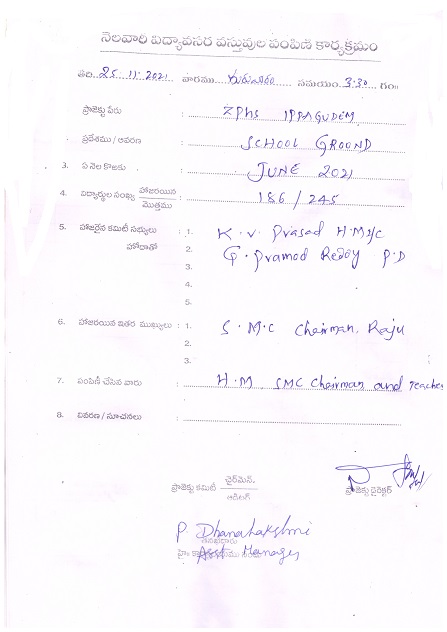 నెలవారి విద్యావసర వస్తువుల పంపిణి కార్యక్రమం
తేది. 25.11.2021 వారము గురువారం సమయం. 3:30 గం॥
ప్రాజెక్టు పేరు : ZPHS IPPAGUDEM
ప్రదేశము / ఆవరణ : SCHOOL GROOND
3. ఏ నెల కొఱకు : JUNE 2021
4. విద్యార్థుల సంఖ్య హాజరయిన : 186 / 245
మొత్తము
5. హాజరైన కమిటీ సభ్యులు : 1. K.V. Prasad H.M i/c
హోదాతో 2. G. Pramod Reddy P.D
3.
4.
5.
6. హాజరయిన ఇతర ముఖ్యులు : 1. S.M.C Chairman, Raju
2.
3.
7. పంపిణీ చేసిన వారు : H.M, SMC Chairman and teache
8. వివరణ / సూచనలు :
ప్రాజెక్టు కమిటీ చైర్మెన్, ప్రాజెక్టు డైరెక్టర్
P. Dhanalakshmi
Asst Manager